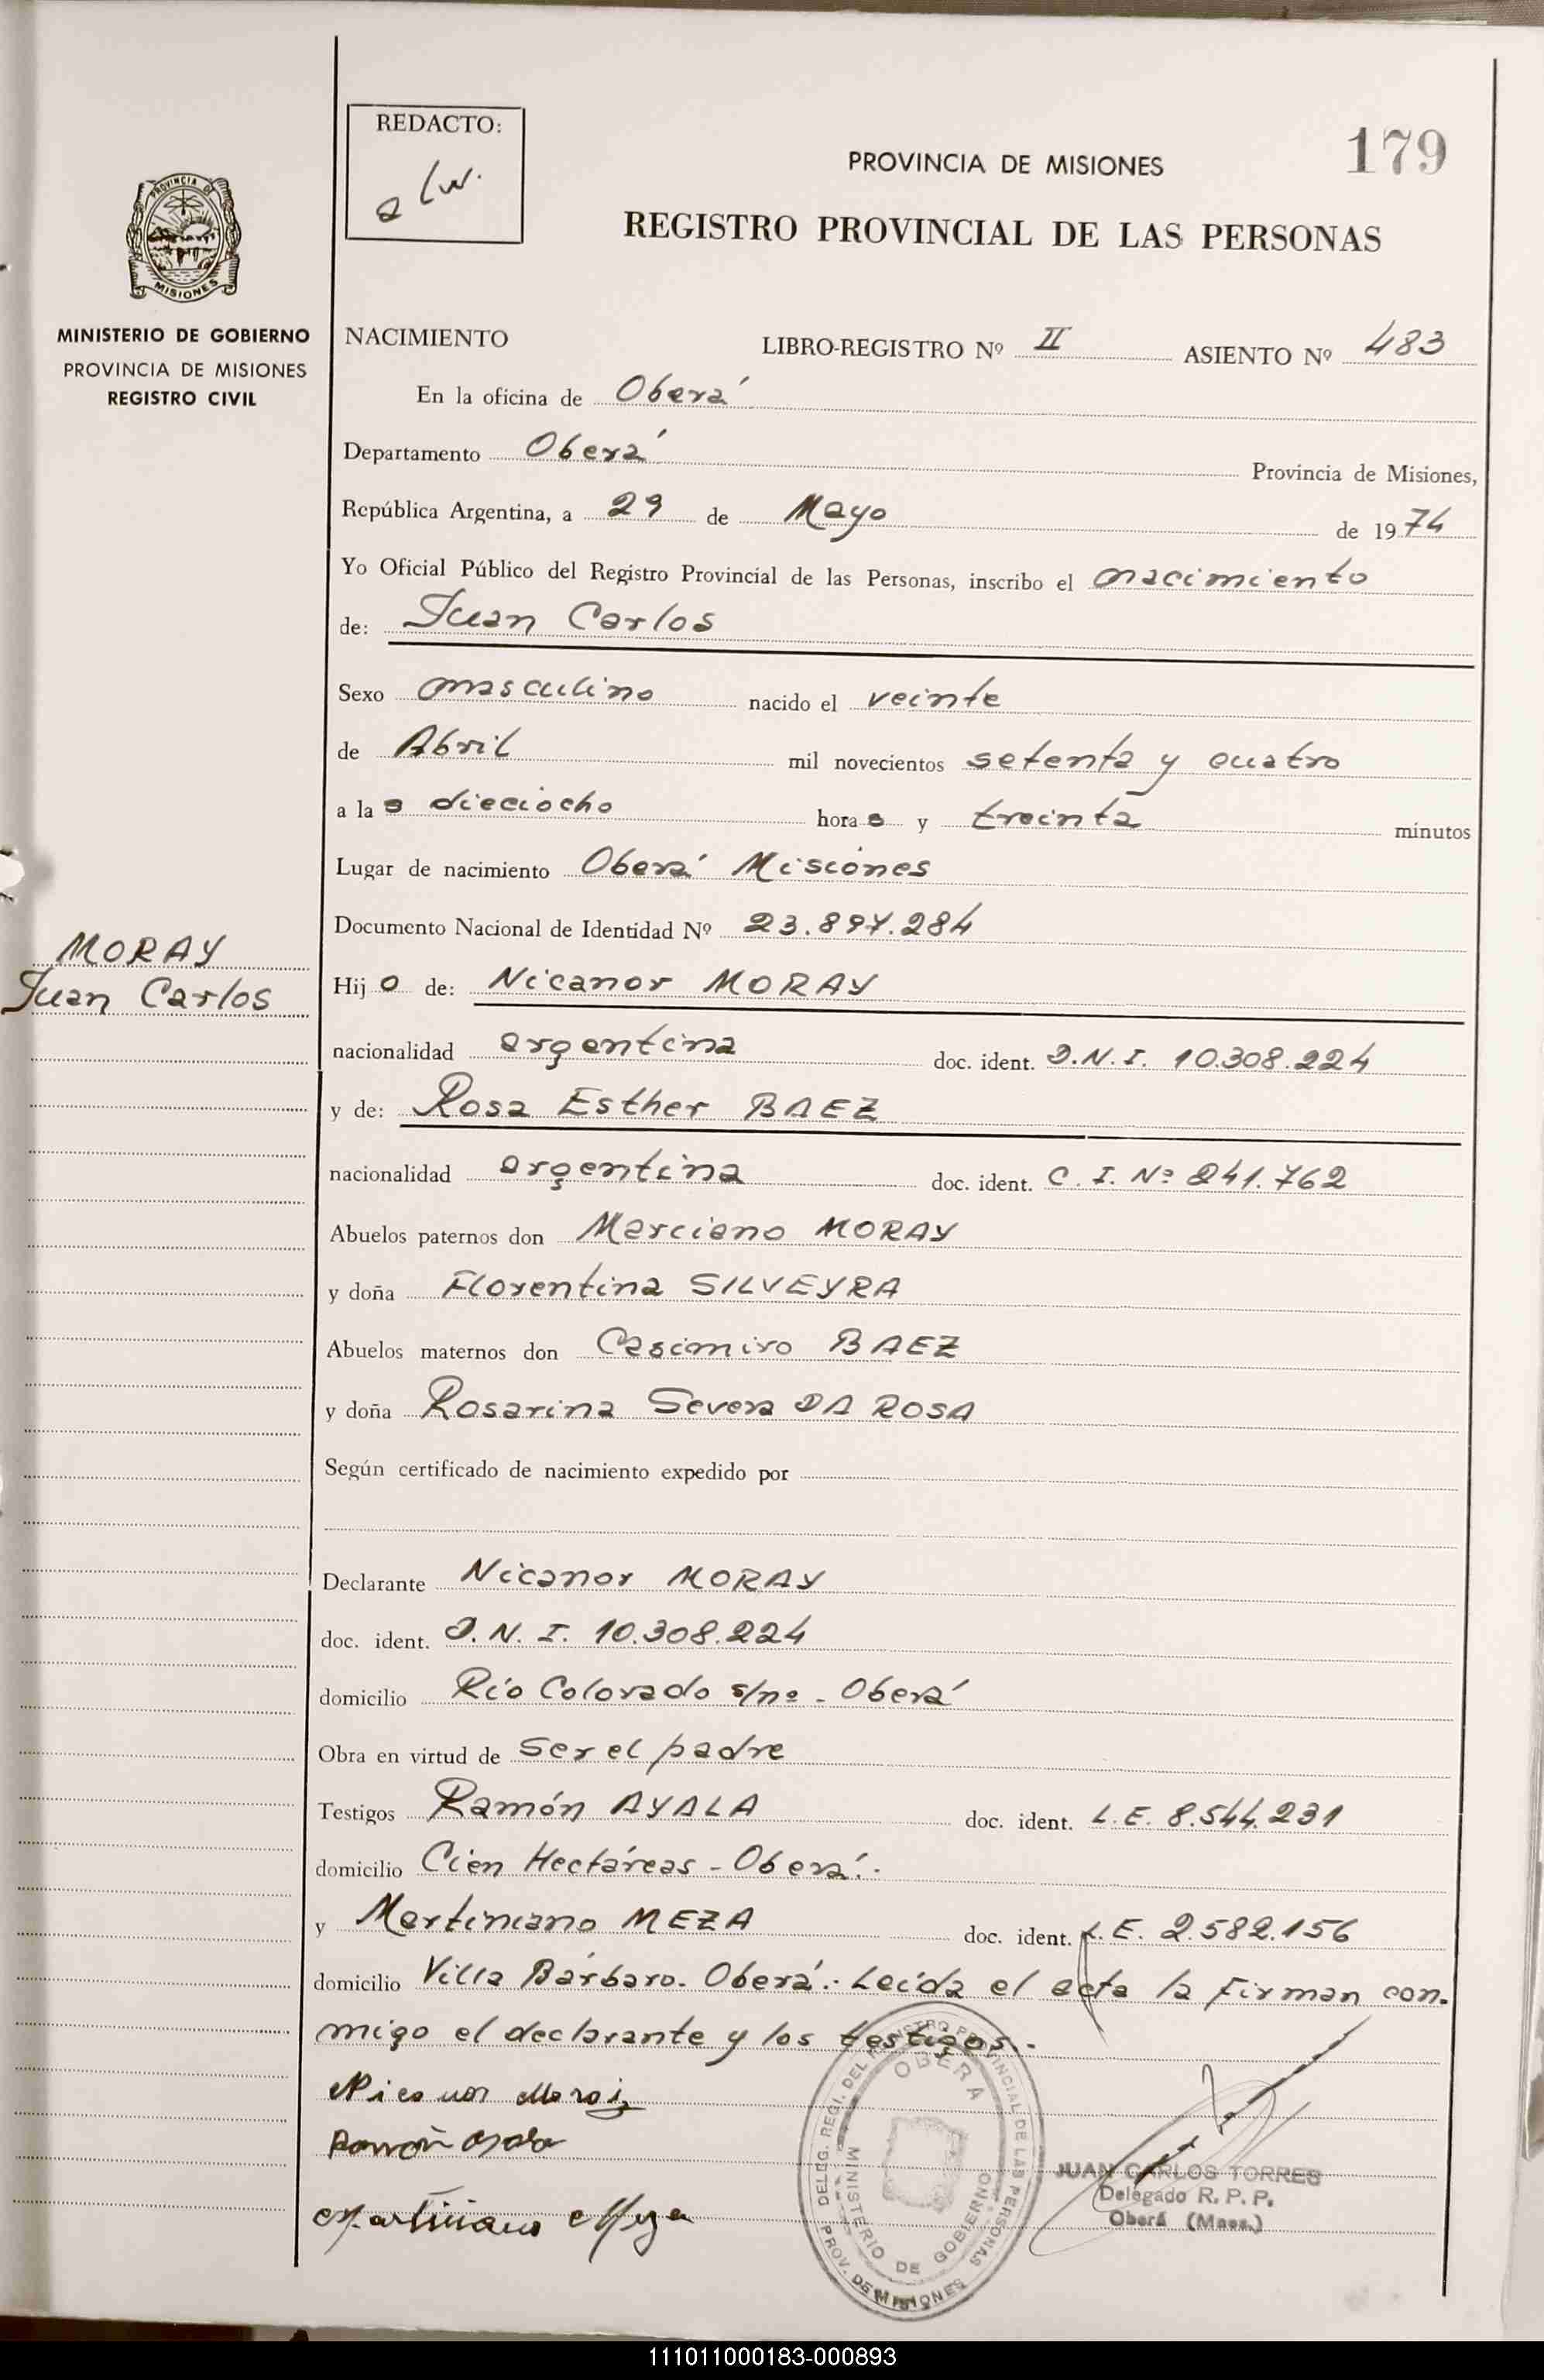 179
REDACTO:
PROVINCIA DE MISIONES
REGISTRO PROVINCIAL DE LAS PERSONAS
PROVINCIA DE
MISIONES
MINISTERIO DE GOBIERNO
PROVINCIA DE MISIONES
REGISTRO CIVIL
NACIMIENTO LIBRO-REGISTRO Nº II ASIENTO Nº 483
En la oficina de Oberá
Departamento Oberá Provincia de Misiones,
República Argentina, a 29 de Mayo de 1974
Yo Oficial Público del Registro Provincial de las Personas, inscribo el nacimiento
de: Juan Carlos
Sexo masculino nacido el veinte
de Abril mil novecientos setenta y cuatro
a las dieciocho horas y treinta minutos
Lugar de nacimiento Oberá Misiones
Documento Nacional de Identidad Nº 23.897.284
MORAY
Juan Carlos
Hijo de: Nicanor MORAY
nacionalidad argentina doc. ident. D.N.I. 10.308.224
y de: Rosa Esther BAEZ
nacionalidad argentina doc. ident. C.I. Nº 241.762
Abuelos paternos don Marciano MORAY
y doña Florentina SILVEYRA
Abuelos maternos don Casimiro BAEZ
y doña Rosarina Severa DA ROSA
Según certificado de nacimiento expedido por
Declarante Nicanor MORAY
doc. ident. D.N.I. 10.308.224
domicilio Río Colorado s/nº - Oberá
Obra en virtud de ser el padre
Testigos Ramón AYALA doc. ident. L.E. 8.544.231
domicilio Cien Hectáreas - Oberá.-
y Martiniano MEZA doc. ident. L.E. 2.582.156
domicilio Villa Bárbaro. Oberá.- Leída el acta la firman con-
migo el declarante y los testigos.-
DELEG. REGI. DEL REGISTRO PROVINCIAL DE LAS PERSONAS
OBERA
MINISTERIO DE GOBIERNO
PROV. DE MISIONES
JUAN CARLOS TORRES
Delegado R. P. P.
Oberá (Mnes.)
111011000183-000893